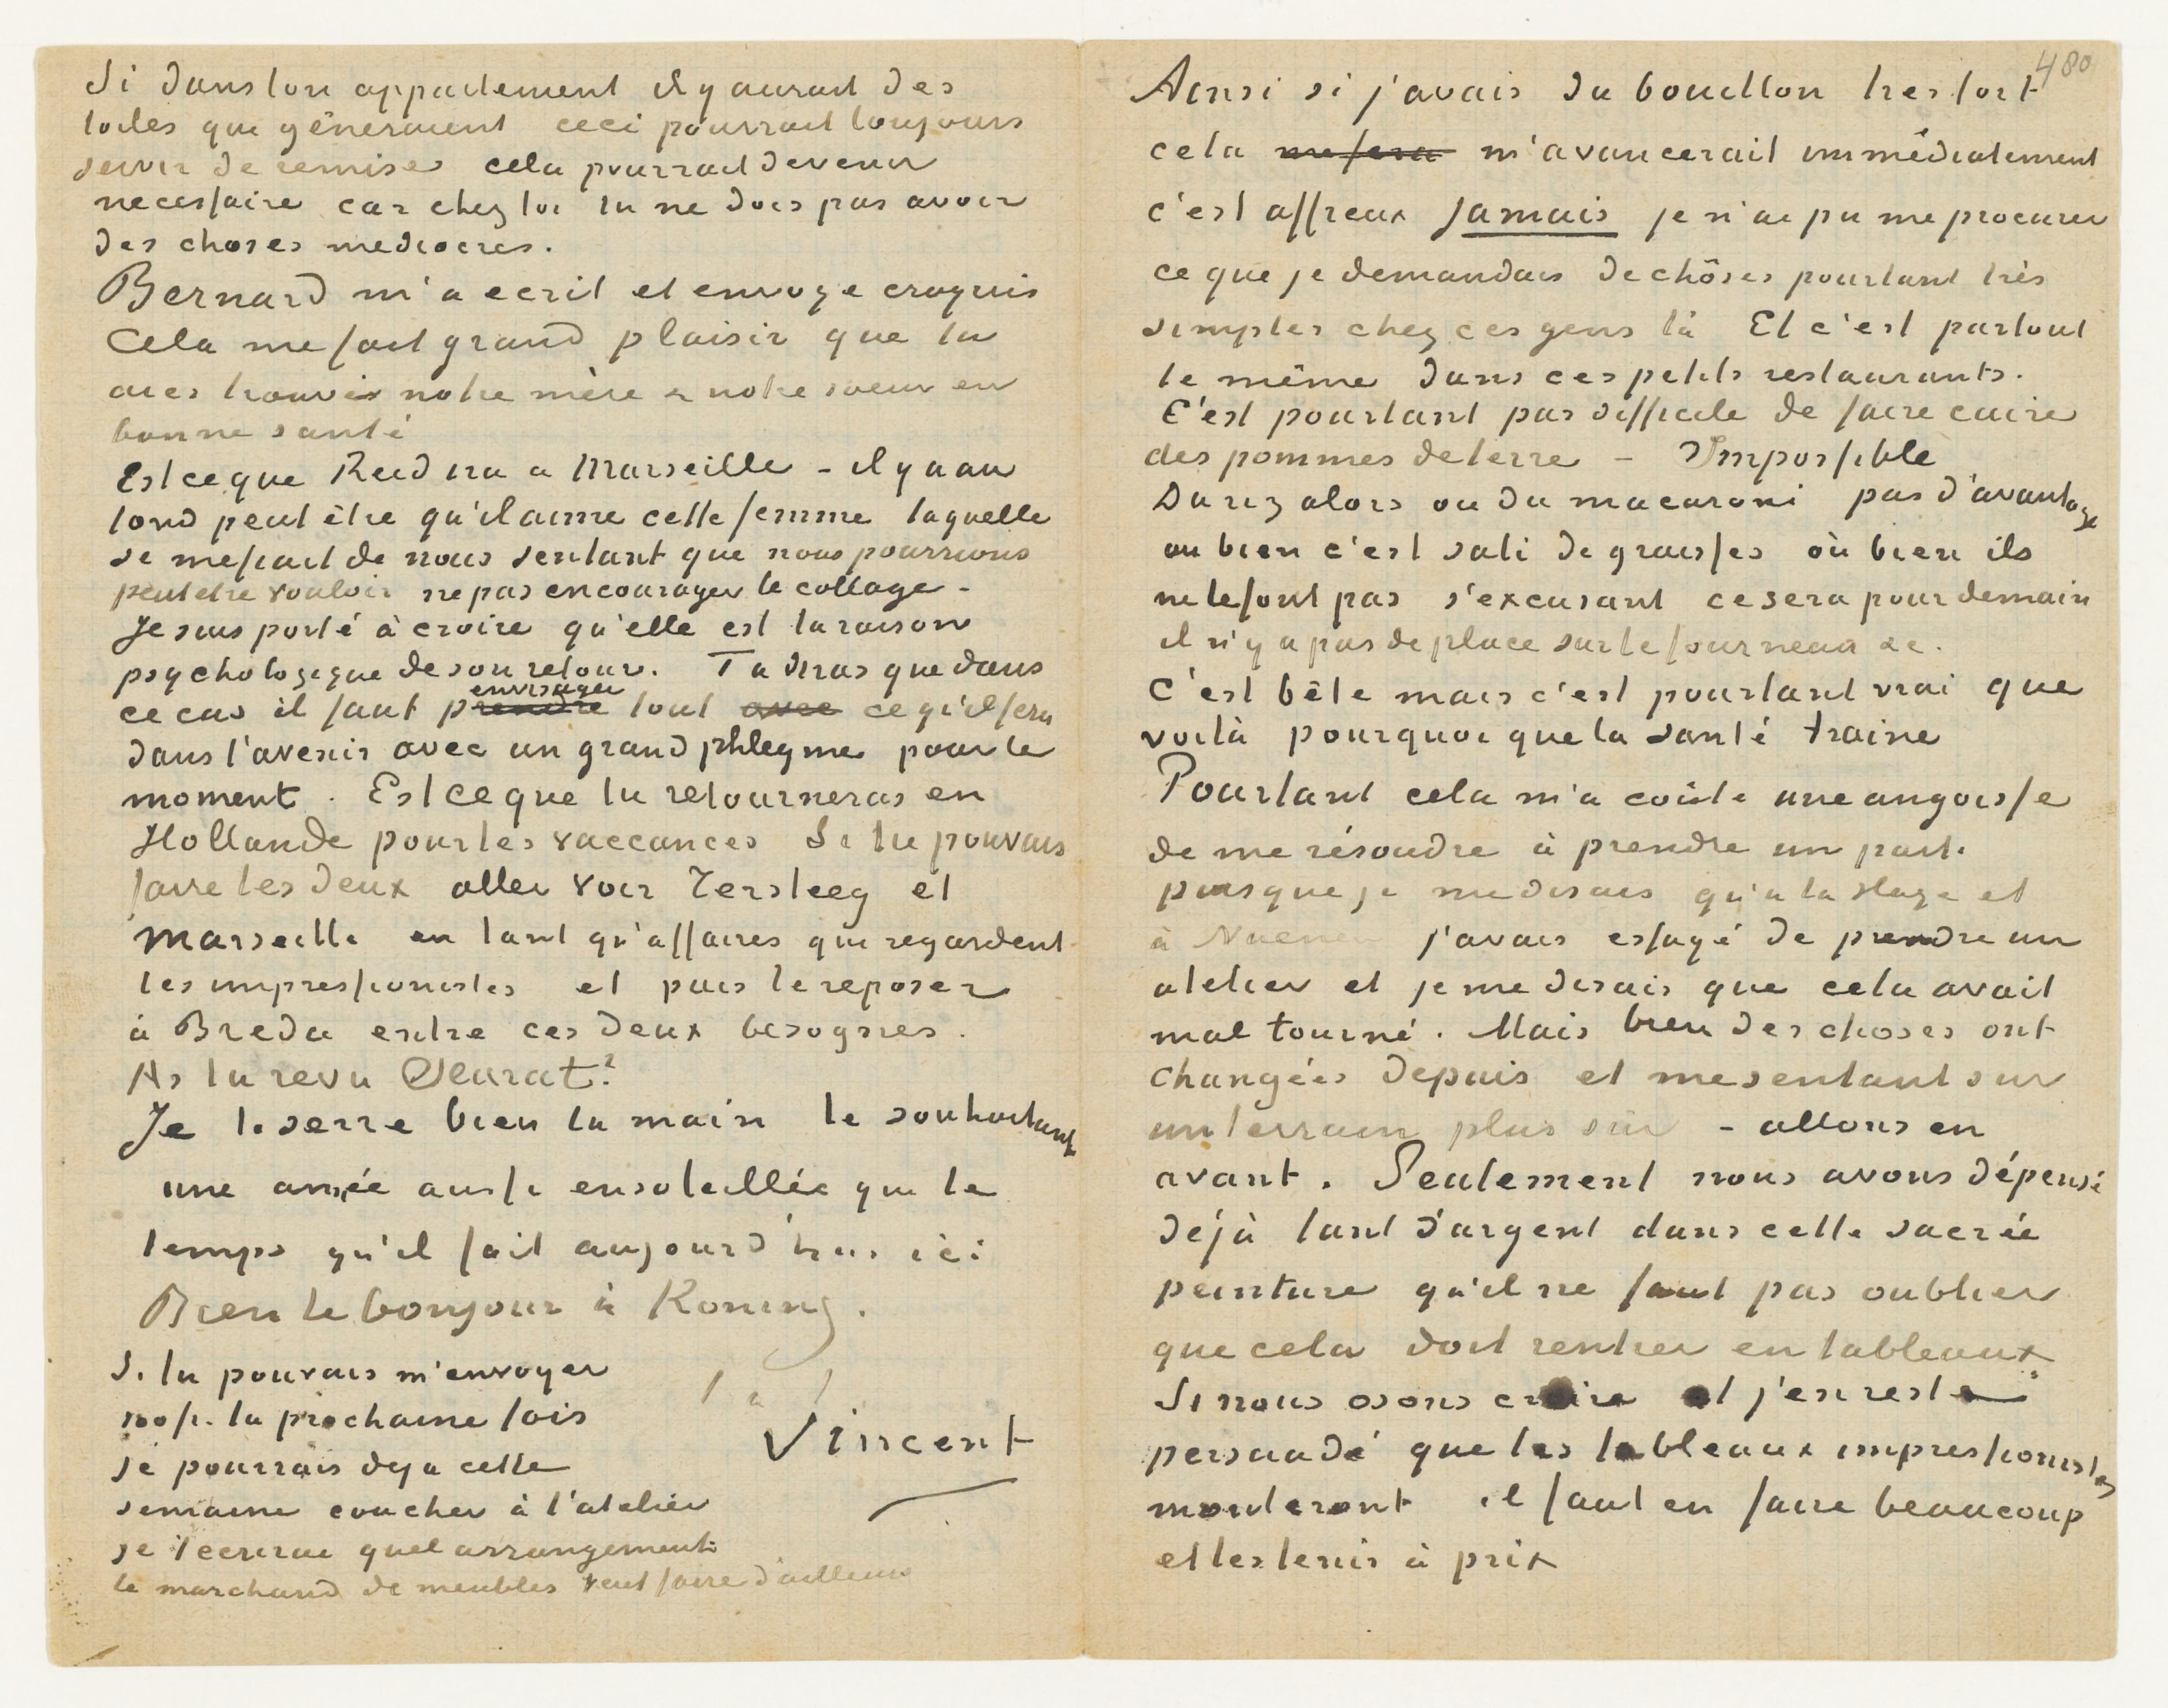 Si dans ton appartement il y aurait des
toiles qui gêneraient ceci pourrait toujours
servir de remise, cela pourrait devenir
necessaire car chez toi tu ne dois pas avoir
des choses mediocres.
Bernard m'a ecrit et envoye croquis
Cela me fait grand plaisir que tu
aies trouvés notre mère & notre soeur en
bonne santé
Est ce que Reid ira a Marseille – il y a au
fond peut être qu'il aime cette femme laquelle
se mefiait de nous sentant que nous pourrions
peutetre vouloir ne pas encourager le collage –
Je suis porté à croire qu'elle est la raison
psychologique de son retour. Tu diras que dans
envisager
ce cas il faut prendre tout avec ce qu'il fera
dans l'avenir avec un grand phlegme pour le
moment. Est ce que tu retourneras en
Hollande pour les vaccances Si tu pouvais
faire les deux aller voir Tersteeg et
Marseille en tant qu'affaires qui regardent
les impressionistes et puis te reposer
à Breda entre ces deux besognes.
As tu revu Seurat?
Je te serre bien la main te souhaitant
une année aussi ensoleillée que le
temps qu'il fait aujourd'hui ici
Bien le bonjour à Koning.
t. à t.
Vincent
Si tu pouvais m'envoyer
100 fr. la prochaine fois
je pourrais deja cette
semaine coucher à l'atelier
je t'ecrirai quel arrangement
le marchand de meubles veut faire d'ailleurs
480
Ainsi si j'avais du bouillon tres fort
cela me fera m'avancerait immédiatement
c'est affreux jamais je n'ai pu me procurer
ce que je demandais de chôses pourtant très
simples chez ces gens là Et c'est partout
le même dans ces petits restaurants.
C'est pourtant pas difficile de faire cuire
des pommes de terre – Impossible
Du riz alors ou du macaroni pas d'avantage
ou bien c'est sali de graisses où bien ils
ne le font pas s'excusant ce sera pour demain
il n'y a pas de place sur le fourneau &c.
C'est bête mais c'est pourtant vrai que
voilà pourquoi que la santé traine
Pourtant cela m'a coûté une angoisse
de me résoudre à prendre un parti
puisque je me disais qu'a la Haye et
à Nuenen j'avais essayé de prendre un
atelier et je me disais que cela avait
mal tourné. Mais bien des choses ont
changées depuis et me sentant sur
un terrain plus sûr – allons en
avant. Seulement nous avons dépensé
déjà tant d'argent dans cette sacrée
peinture qu'il ne faut pas oublier
que cela doit rentrer en tableaux.
Si nous osons croire et j'en reste
persuadé que les tableaux impressionistes
monteront il faut en faire beaucoup
et les tenir à prix